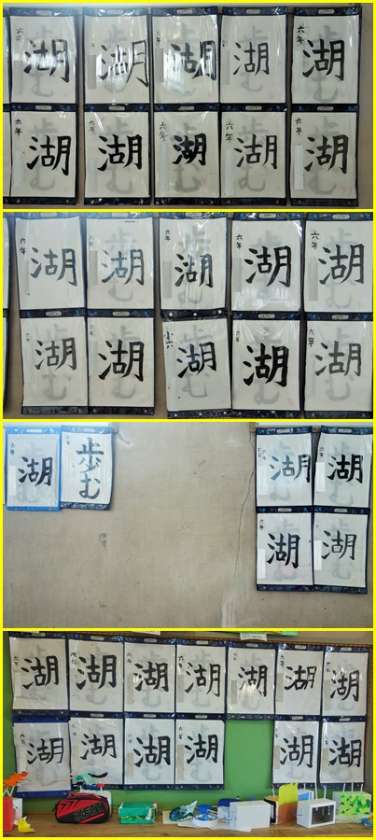 湖 湖 湖 湖 六年 湖
六年 湖 六年 湖 六年 湖 六年 湖 六年 湖
六年 湖 湖 六年 湖 六年 湖 六年 湖
湖 湖 湖 湖 六年 湖
湖 歩む 湖 湖
湖 湖
湖 湖 湖 六年 湖 湖 湖 湖
湖 湖 湖 湖 湖 湖